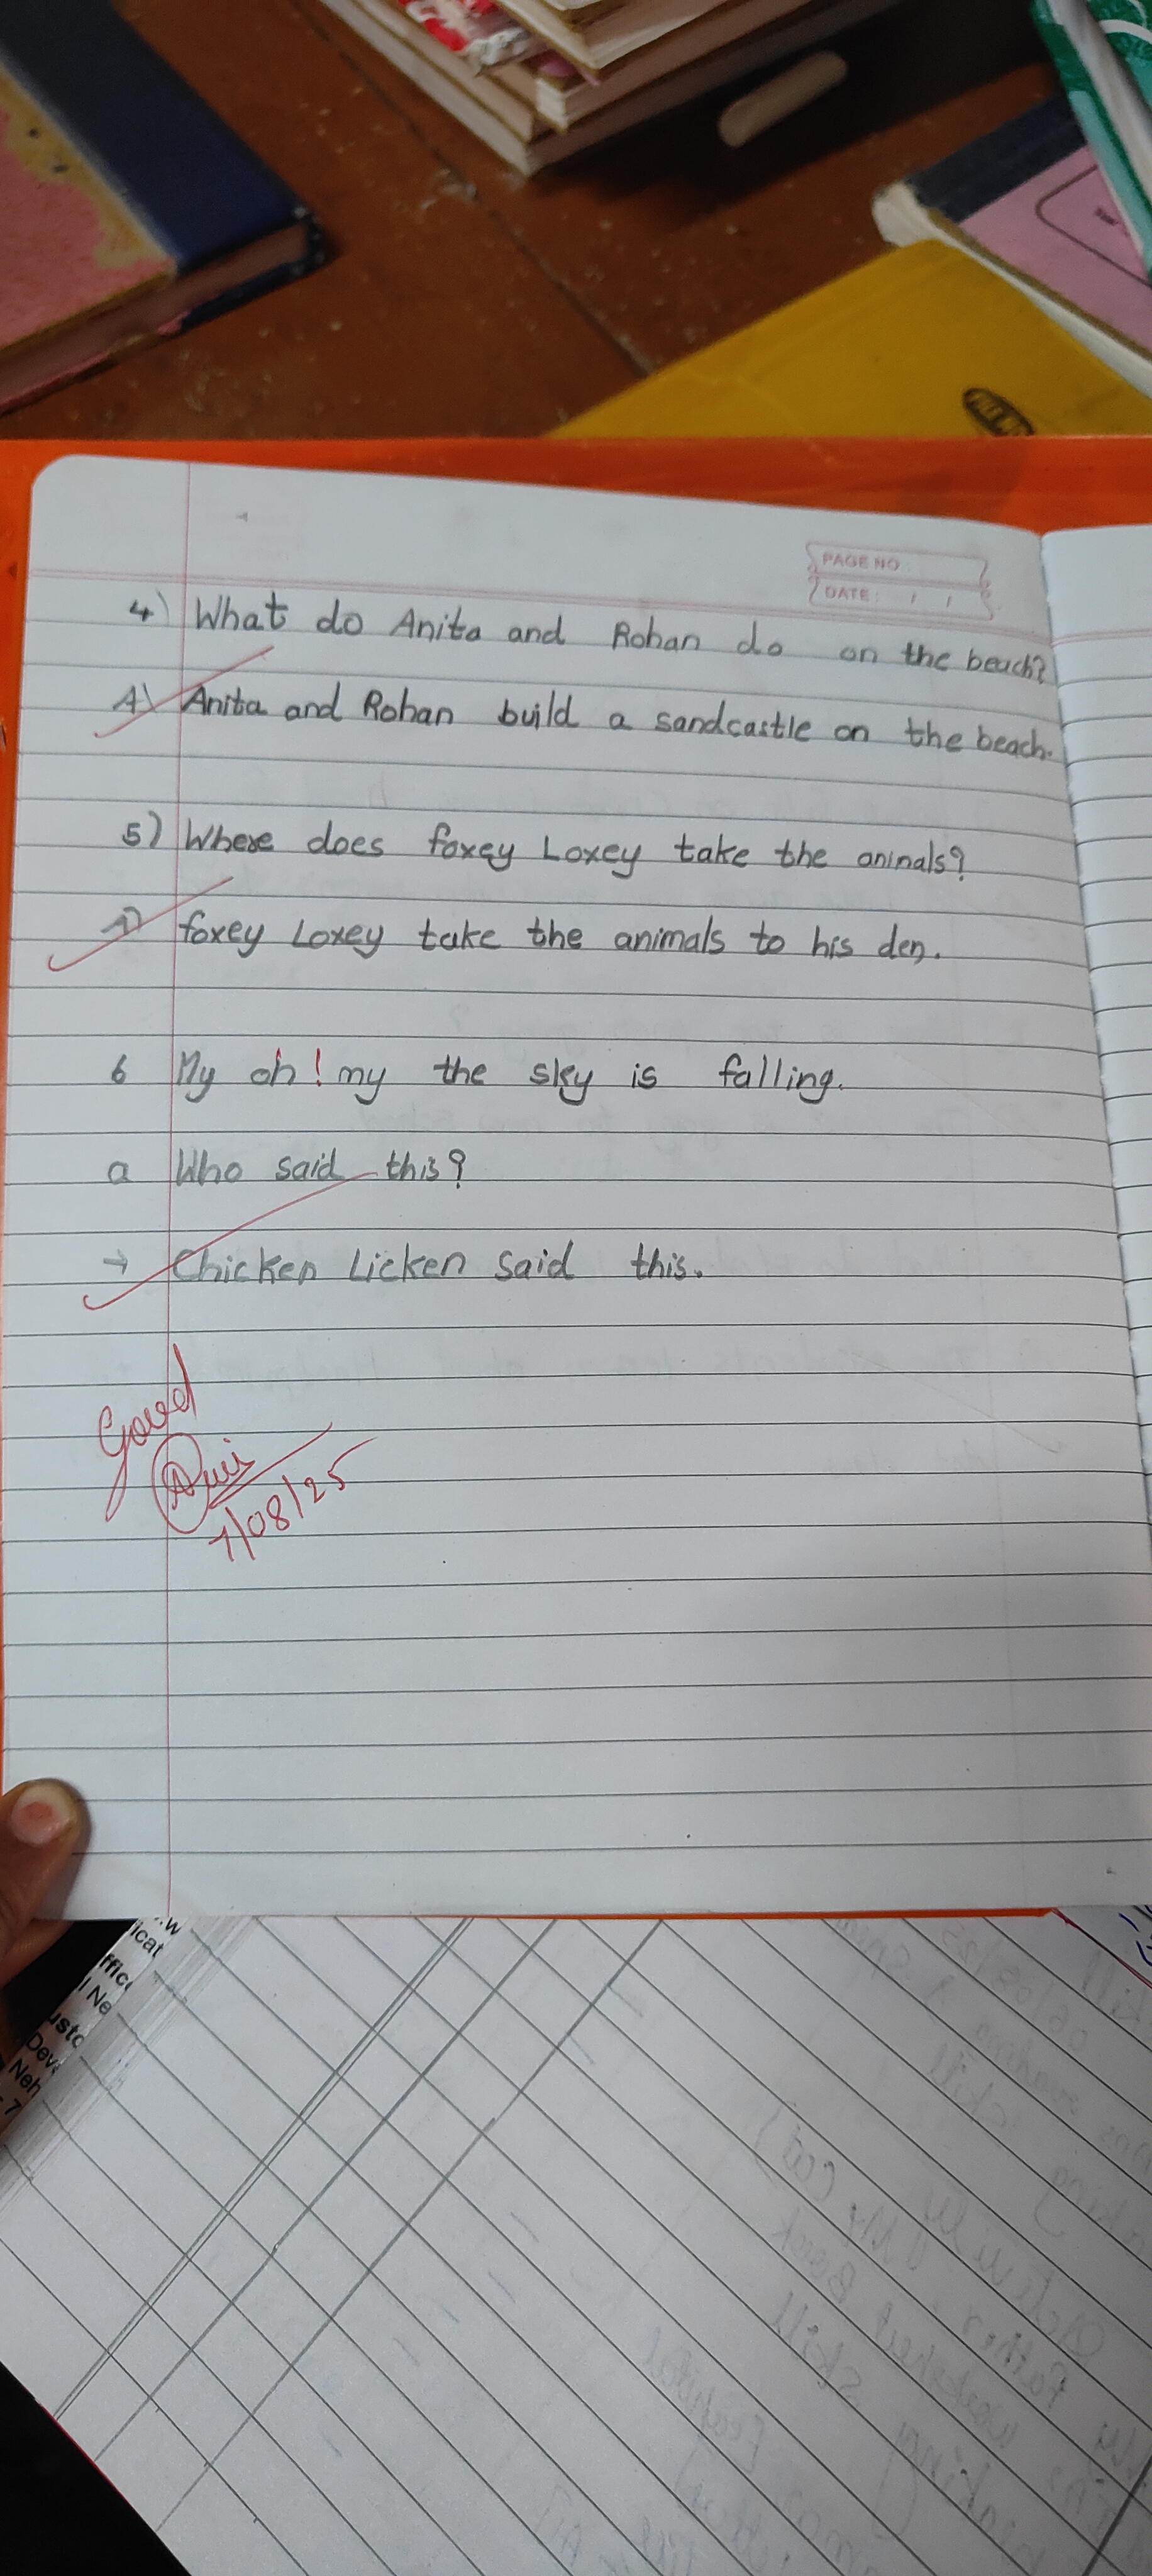 PAGE NO
DATE: / /
4) What do Anita and Rohan do on the beach?
A) Anita and Rohan build a sandcastle on the beach.
5) Where does foxey Loxey take the aninals?
A) foxey Loxey take the animals to his den.
6 My oh! my the sky is falling.
a Who said this?
→ Chicken Licken said this.
Good
7/08/25